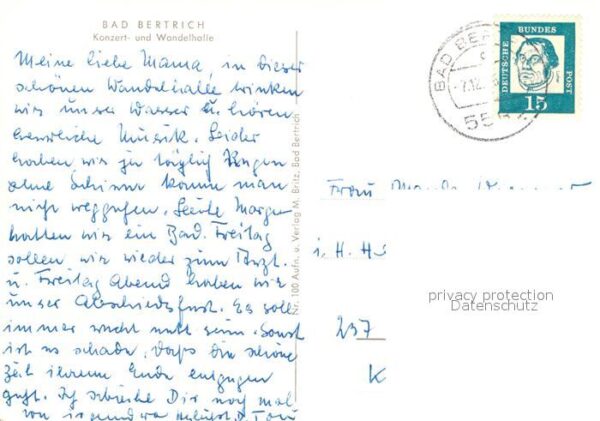 BAD BERTRICH
Konzert- und Wandelhalle
Meine liebe Mama, in dieser
schönen Wandelhalle trinken
wir unser Wasser u. hören
herrliche Musik. Leider
haben wir ja täglich Regen
ohne Schirm konnte man
nicht weggehen. Heute Morgen
hatten wir ein Bad. Freitag
sollen wir wieder zum Arzt.
u. Freitag Abend haben wir
unser Abschiedsfest. Es soll
immer recht nett sein. Sonst
ist es schade, daß die schöne
Zeit ihrem Ende entgegen
geht. Ich schreibe Dir noch mal
von irgendwo
Nr. 100 Aufn. u. Verlag M. Britz, Bad Bertrich
BAD BER
7.12.
DEUTSCHE BUNDES POST
15
Frau
i. H.
privacy protection
Datenschutz
237
K